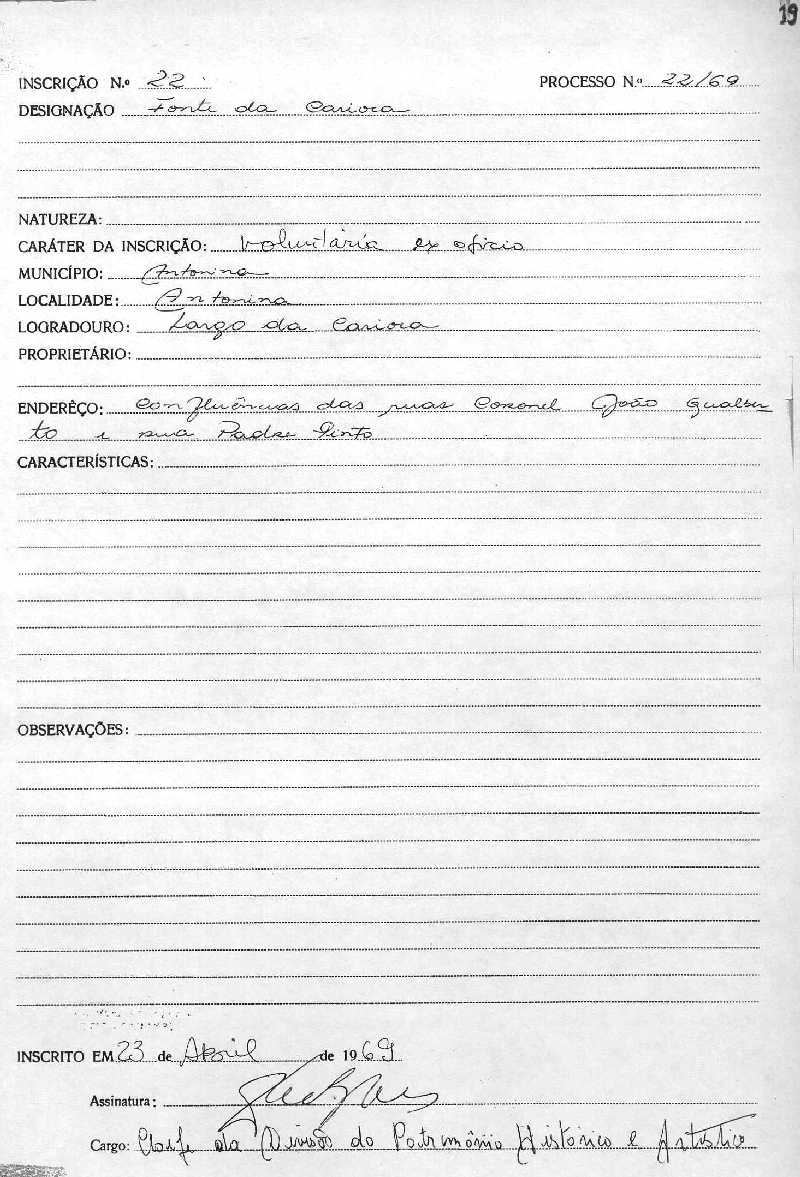 19
INSCRIÇÃO N.º 22 PROCESSO N.º 22/69
DESIGNAÇÃO Fonte da Carioca
NATUREZA:
CARÁTER DA INSCRIÇÃO: Voluntária ex oficio
MUNICÍPIO: Antonina
LOCALIDADE: Antonina
LOGRADOURO: Largo da Carioca
PROPRIETÁRIO:
ENDERÊÇO: Confluências das ruas Coronel João Gualber
to e rua Padre Pinto
CARACTERÍSTICAS:
OBSERVAÇÕES:
INSCRITO EM 23 de Abril de 1969
Assinatura:
Cargo: Chefe da Divisão do Patrimônio Histórico e Artístico